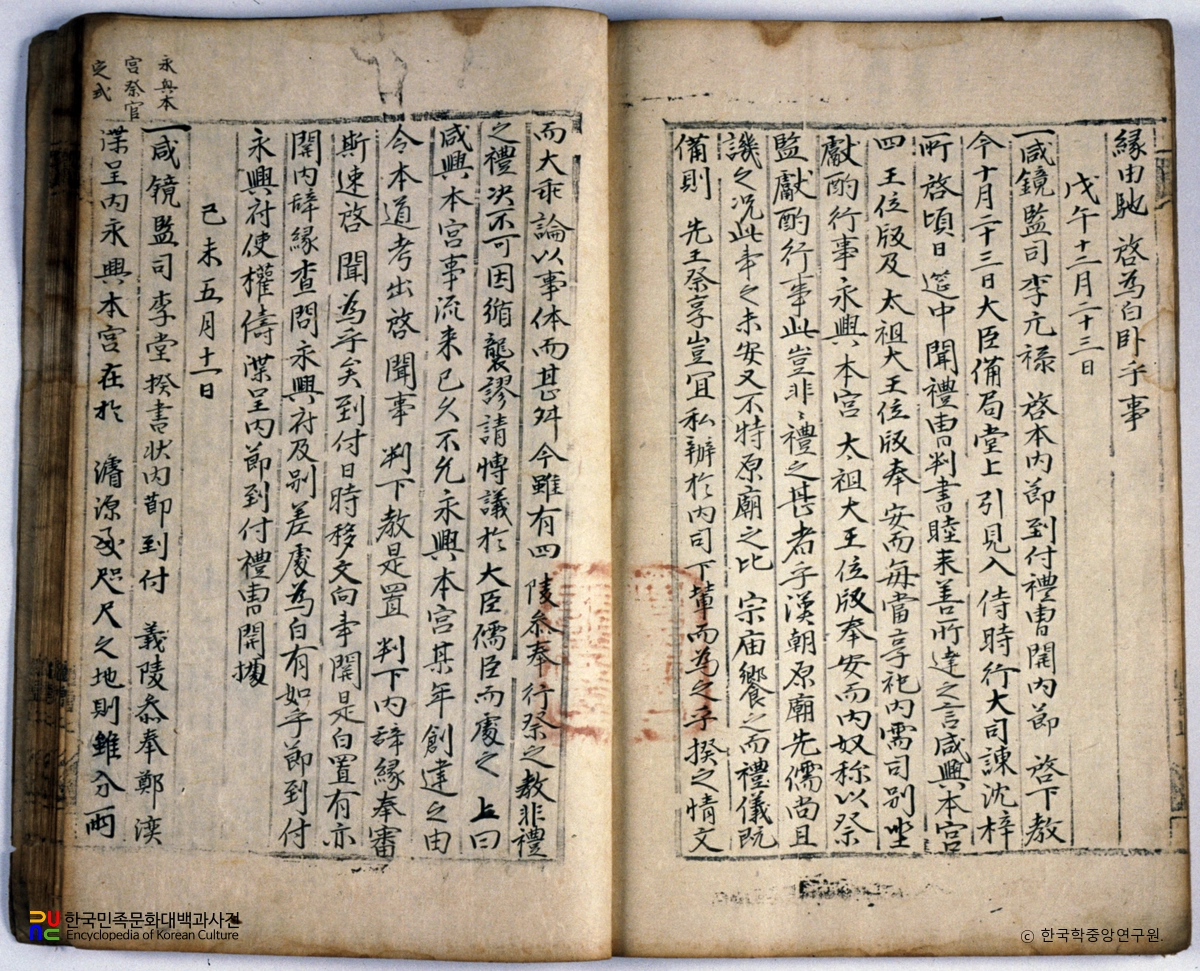 緣由馳 啓為白臥乎事
戊午十二月二十三日
一咸鏡監司李元祿 啓本內節到付禮曺關內節 啓下教
今十月二十三日大臣備局堂上 引見入 侍時行大司諫沈梓
所 啓頃日 筵中聞禮曺判書睦来善所達之言咸興本宮
四 王位版及 太祖大王位版奉安而每當享祀內需司別坐
獻酌行事永興本宮 太祖大王位版奉安而內奴称以祭
監獻酌行事此豈非非禮之甚者乎漢朝原廟先儒尚且
譏之况此事之未安又不特原廟之比 宗庙饗之而禮儀旣
備則 先王祭享豈冝私辦於內司下輩而為之乎揆之情文
而大乖論以事体而甚舛今雖有四 陵叅奉行祭之教非禮
之禮决不可因循襲謬請博議於大臣儒臣而處之 上曰
咸興本宮事流来已久不允永興本宮某年創建之由
令本道考出啓 聞事 判下教是置 判下內辞緣奉審
斯速啓 聞為乎矣到付日時移文向事關是白置有亦
關內辞緣查問永興府及別差處為白有如乎節到付
永興府使權儔牒呈內節到付禮曺關據
己未五月十一日
永興本
宮祭官
定式
一咸鏡監司李堂揆書狀內節到付 義陵叅奉鄭渶
牒呈內永興本宮在於 濬源殿咫尺之地則雖分兩
한국민족문화대백과사전
Encyclopedia of Korean Culture
ⓒ 한국학중앙연구원.